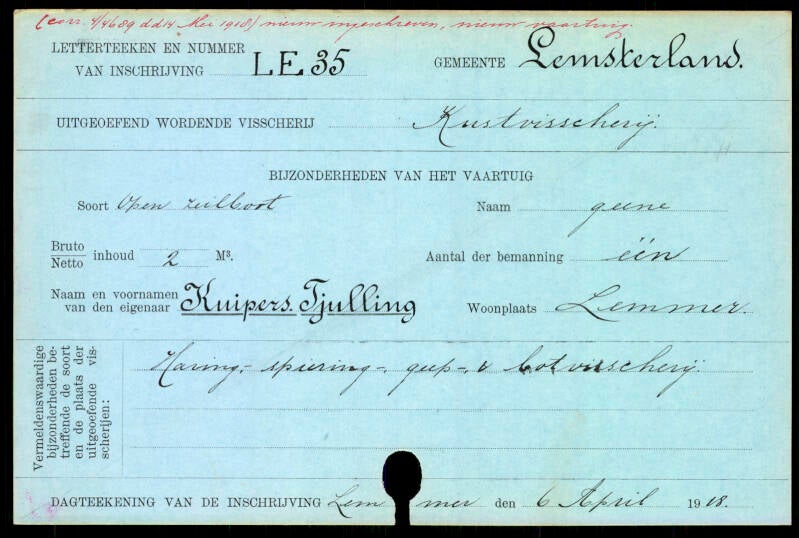 (corr. 4/4689 dd 14 Mei 1918) nieuw ingeschreven, nieuw vaartuig.
LETTERTEEKEN EN NUMMER
VAN INSCHRIJVING LE 35 GEMEENTE Lemsterland.
UITGEOEFEND WORDENDE VISSCHERIJ Kustvisscherij.
BIJZONDERHEDEN VAN HET VAARTUIG
Soort Open zeilboot Naam geene
Bruto
Netto inhoud 2 M³. Aantal der bemanning één
Naam en voornamen
van den eigenaar Kuipers. Tjulling Woonplaats Lemmer.
Vermeldenswaardige
bijzonderheden be-
treffende de soort
en de plaats der
uitgeoefende vis-
scherijen:
Haring,- spiering-, geep-, & botvisscherij.
DAGTEEKENING VAN DE INSCHRIJVING Lemmer den 6 April 1918.